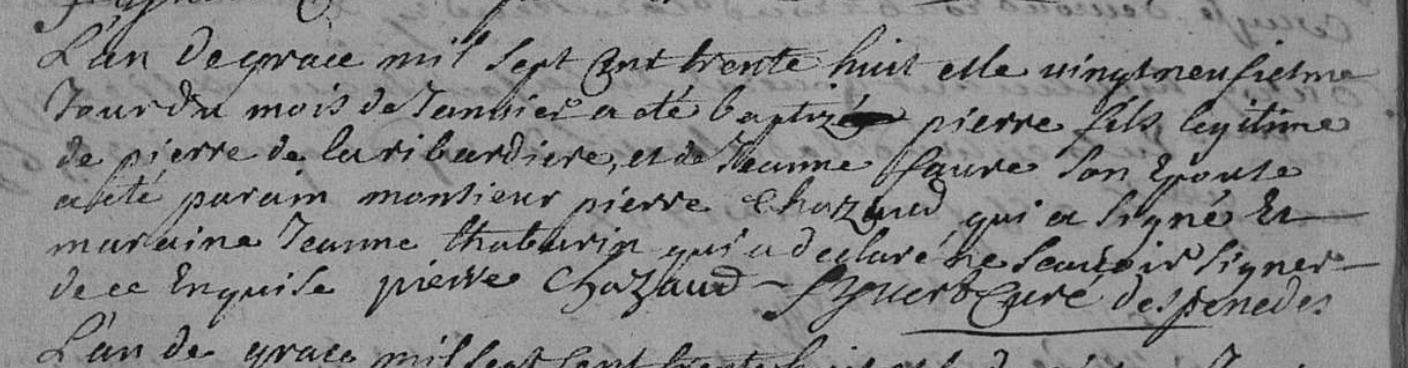 L'an de grace mil sept cent trente huit et le vingt neufiesme
Jour du mois de Janvier a eté baptizé pierre fils legitime
de pierre de laribardiere, et de Jeanne faure son Epouse
a esté parain monsieur pierre Chazaud qui a signé Et
maraine Jeanne thabarin qui a declaré ne scavoir signer
de ce Enquise pierre Chazaud curé despenedes
L'an de grace mil sept cent trente huit et le